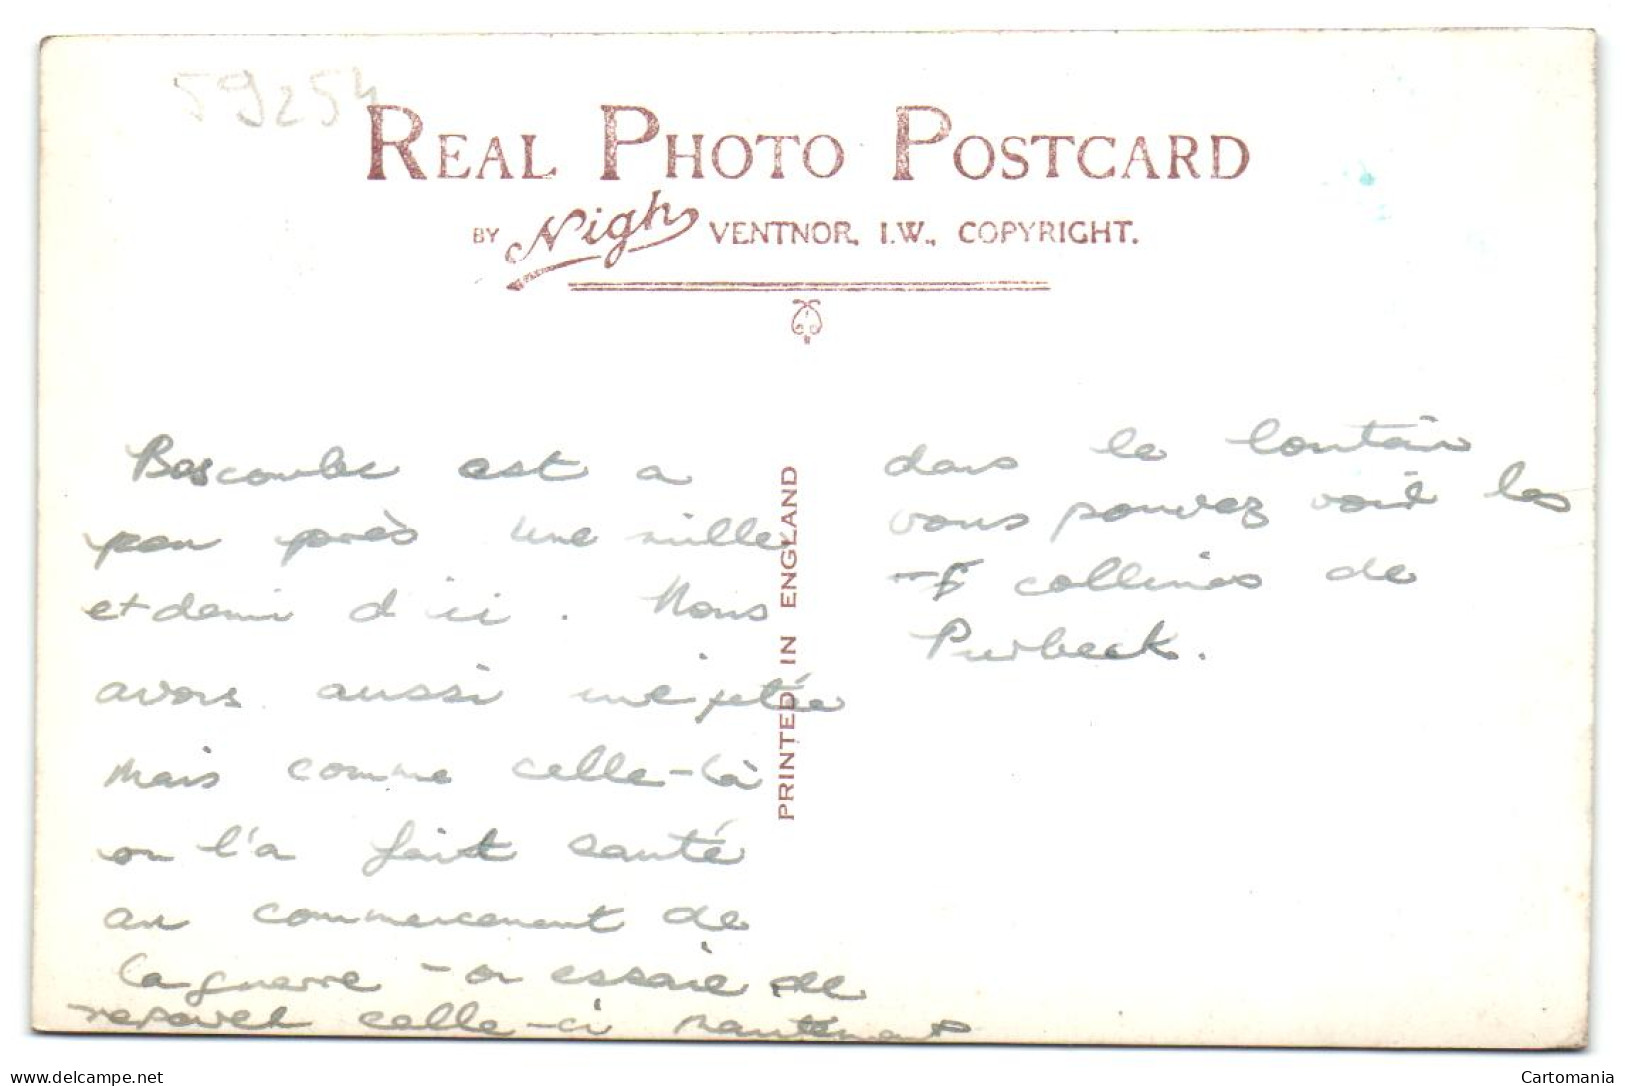 59254
REAL PHOTO POSTCARD
BY Nigh VENTNOR, I.W., COPYRIGHT.
PRINTED IN ENGLAND
Boscombe est a
peu près une mille
et demi d'ici. Nous
avons aussi une jetée
mais comme celle-là
on l'a fait sauté
au commencement de
la guerre - on essaie de
reparer celle-ci maintenant
dans le lontain
vous pouvez voir les
collines de
Purbeck.
www.delcampe.net
Cartomania